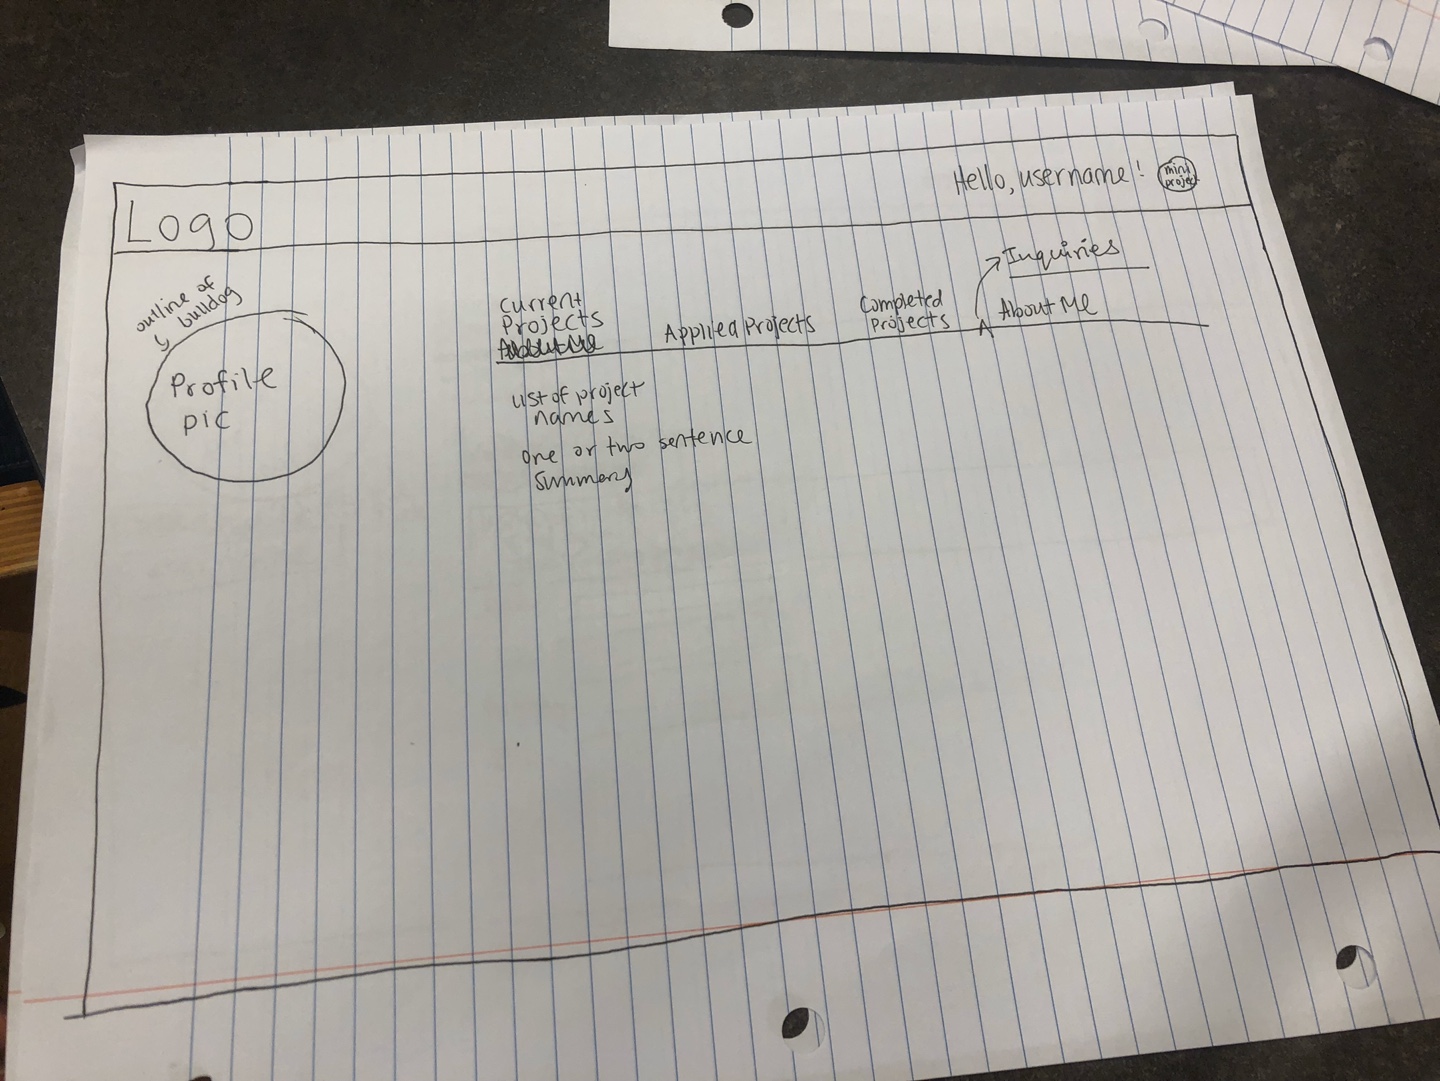 Logo
Hello, username!
mini
project
Inquiries
outline of
bulldog
Profile
pic
Current
Projects
Applied Projects
Completed
Projects
About Me
list of project
names
one or two sentence
summary